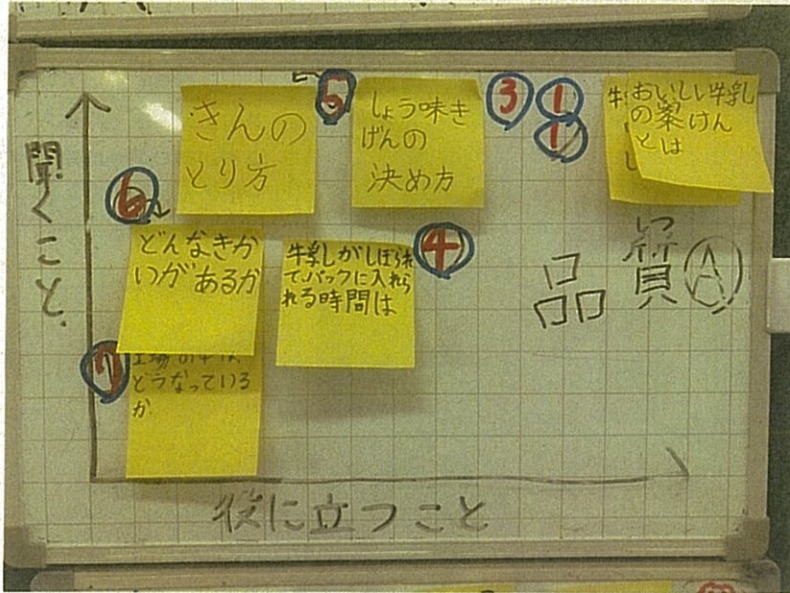 聞くこと.
5
きんの
とり方
しょう味き
げんの
決め方
3
1
1
牛
し
おいしい牛乳
の条けん
とは
6
どんなきか
いがあるか
牛乳がしぼられ
てパックに入れら
れる時間は
4
しつ
品質A
7
どうなっている
か
役に立つこと